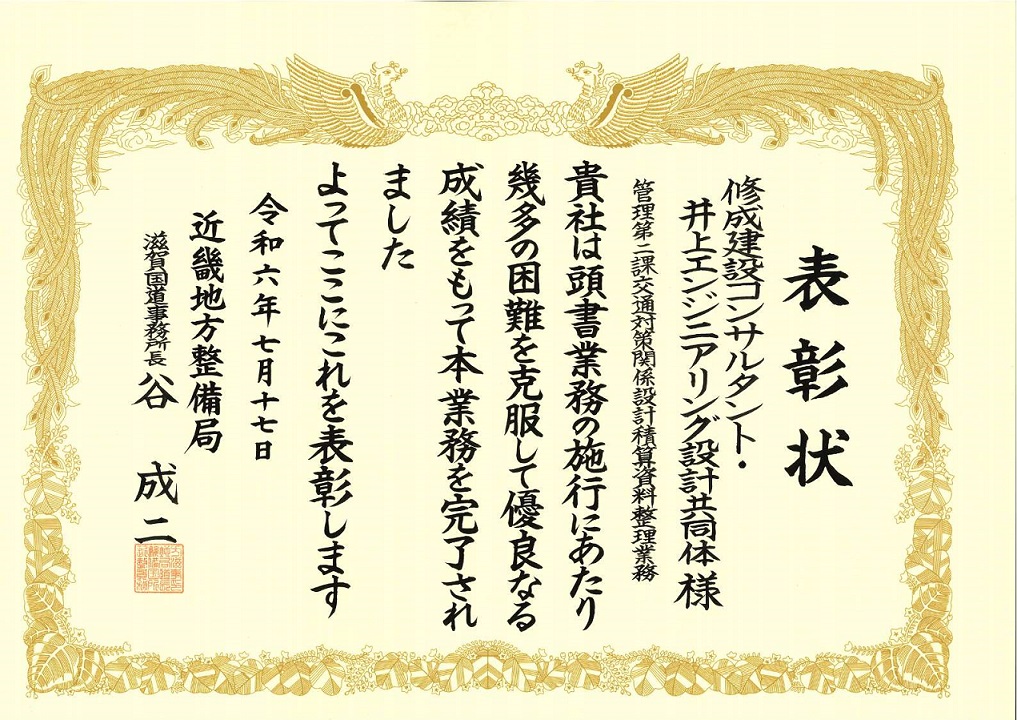 表彰状
修成建設コンサルタント・
井上エンジニアリング設計共同体 様
管理第二課交通対策関係設計積算資料整理業務
貴社は頭書業務の施行にあたり
幾多の困難を克服して優良なる
成績をもって本業務を完了され
ました
よってここにこれを表彰します
令和六年七月十七日
近畿地方整備局
滋賀国道事務所長 谷 成二